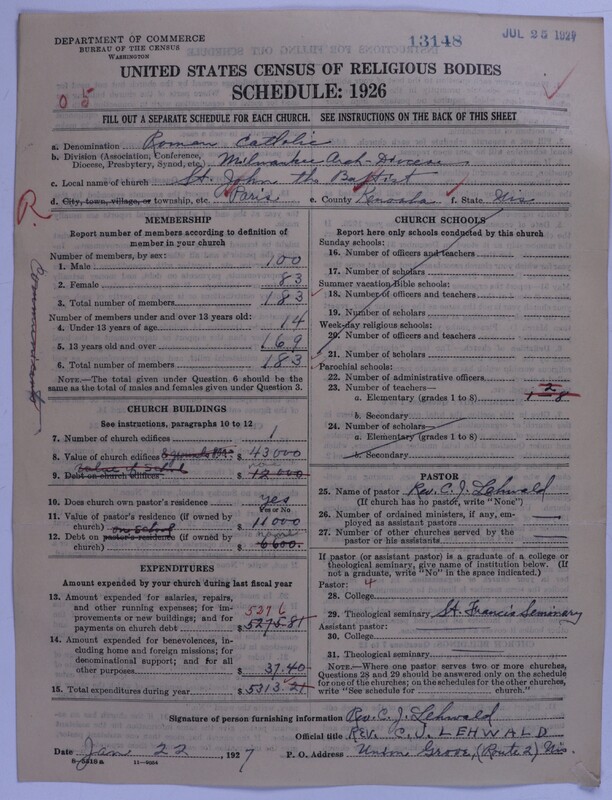 DEPARTMENT OF COMMERCE
BUREAU OF THE CENSUS
WASHINGTON
13148
JUL 25 1927
UNITED STATES CENSUS OF RELIGIOUS BODIES
SCHEDULE: 1926
0 5
FILL OUT A SEPARATE SCHEDULE FOR EACH CHURCH. SEE INSTRUCTIONS ON THE BACK OF THIS SHEET
a. Denomination Roman Catholic
b. Division (Association, Conference, Diocese, Presbytery, Synod, etc.) Milwaukee Arch-Diocese
c. Local name of church St. John the Baptist
d. City, town, village, or township, etc. Paris e. County Kenosha f. State Wis
R.
Communicants
MEMBERSHIP
Report number of members according to definition of member in your church
Number of members, by sex:
1. Male 100
2. Female 83
3. Total number of members 183
Number of members under and over 13 years old:
4. Under 13 years of age 14
5. 13 years old and over 169
6. Total number of members 183
NOTE.—The total given under Question 6 should be the same as the total of males and females given under Question 3.
CHURCH BUILDINGS
See instructions, paragraphs 10 to 12
7. Number of church edifices 1
8. Value of church edifices $ 43000
value of School
9. Debt on church edifices none 12000
10. Does church own pastor's residence yes
Yes or No
11. Value of pastor's residence (if owned by church) $ 11000
on School
12. Debt on pastor's residence (if owned by church) none $ 6600.
EXPENDITURES
Amount expended by your church during last fiscal year
13. Amount expended for salaries, repairs, and other running expenses; for improvements or new buildings; and for payments on church debt 5276 $ 5275.81
14. Amount expended for benevolences, including home and foreign missions; for denominational support; and for all other purposes $ 37.40
15. Total expenditures during year $ 5313.21
CHURCH SCHOOLS
Report here only schools conducted by this church
Sunday schools:
16. Number of officers and teachers
17. Number of scholars
Summer vacation Bible schools:
18. Number of officers and teachers
19. Number of scholars
Week-day religious schools:
20. Number of officers and teachers
21. Number of scholars
Parochial schools:
22. Number of administrative officers
23. Number of teachers—
a. Elementary (grades 1 to 8)
b. Secondary
24. Number of scholars—
a. Elementary (grades 1 to 8)
b. Secondary
PASTOR
25. Name of pastor Rev. C. J. Lehwald
(If church has no pastor, write "None")
26. Number of ordained ministers, if any, employed as assistant pastors
27. Number of other churches served by the pastor or his assistants
If pastor (or assistant pastor) is a graduate of a college or theological seminary, give name of institution below. (If not a graduate, write "No" in the space indicated.)
Pastor: 4
28. College
29. Theological seminary St. Francis Seminary
Assistant pastor:
30. College
31. Theological seminary
NOTE.—Where one pastor serves two or more churches, Questions 28 and 29 should be answered only on the schedule for one of the churches; on the schedules for the other churches, write "See schedule for church."
Signature of person furnishing information Rev. C. J. Lehwald
Official title REV. C. J. LEHWALD
Date Jan 22, 1927 P. O. Address Union Grove, (Route 2) Wis.
8-5318a 11-9094